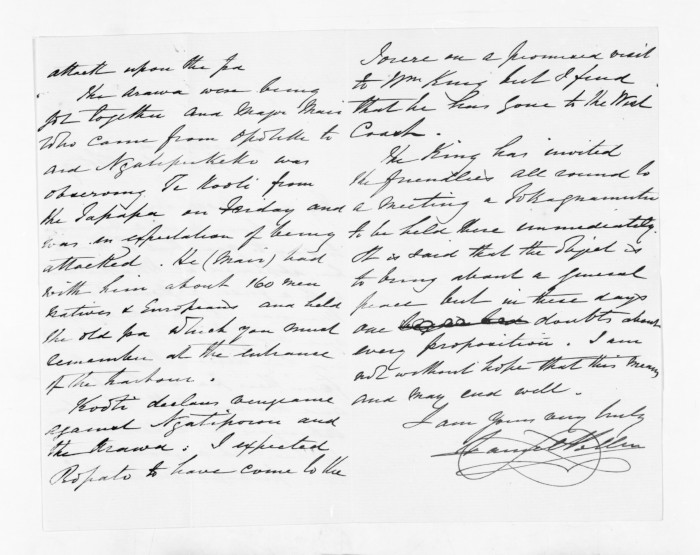 attack upon the Pa
The Arawa were being
got together and Major Mair
who came from Opotiki to
aid Ngatipukeko was
observing Te Kooti from
the Tapapa on Friday and
was in expectation of being
attacked. He (Mair) had
with him about 160 men
natives & Europeans and held
the old Pa which you must
remember at the entrance
of the harbour.
Kooti declares vengeance
against Ngatiporou and
the Arawa: I expected
Ropata to have come to the
on a promised visit
to Wm King but I find
that he has gone to the West
Coast.
The King has invited
the friendlies all round to
a meeting a Tokagnamutu
to be held there immediately.
It is said that the object is
to bring about a general
peace but in these days
one doubts about
every proposition. I am
not without hope that this means
and may end well.
I am yours very truly
Daniel Pollen